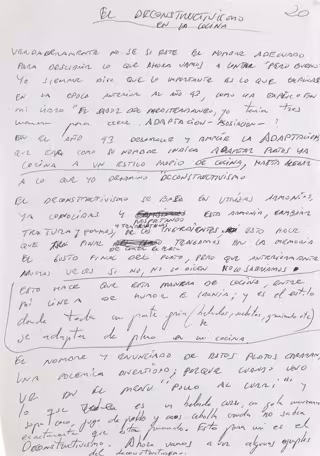 EL DECONSTRUCTIVISMO
EN LA COCINA
20
VERDADERAMENTE NO SE SI ESTE EL NOMBRE ADECUADO
PARA DESCUBRIR LO QUE AHORA VAMOS A CONTAR "PERO BUENO"
YO SIEMPRE DIGO QUE LO IMPORTANTE ES LO QUE EXPLICAS
EN LA EPOCA ANTERIOR AL AÑO 93, COMO YA EXPLICO EN
MI LIBRO "EL SABOR DEL MEDITERRANEO, YO TENIA TRES
para crear. ADAPTACION - ASOCIACION - ?
EN EL AÑO 93 DESARROLLE Y AMPLIE LA ADAPTACION
QUE COMO SU NOMBRE INDICA ADAPTAR PLATOS YA
COCINA A UN ESTILO PROPIO DE COCINA, HASTA LLEGAR
A LO QUE YO DENOMINO "DECONSTRUCTIVISMO
EL DECONSTRUCTIVISMO SE BASA EN UTILIZAR ARMONIAS,
YA CONOCIDAS Y RESPETANDO ESTA ARMONIA, CAMBIAR
TEXTURA Y FORMAS, DE LOS INGREDIENTES. ESTO HACE
QUE AL FINAL TENGAMOS EN LA MEMORIA
EL GUSTO FINAL DEL PLATO, PERO QUE ANTERIORMENTE
MUCHAS VECES SI NO, NO LO DICEN NO LO SABRIAMOS.
ESTO HACE QUE ESTA MANERA DE COCINA, ENTRE
MI LINEA DE HUMOR E IRONIA; y es el estilo
donde toda mi parte fria (helados, gelatinas, granizado etc)
se adapta de pleno en mi cocina.
EL NOMBRE Y ENUNCIADO DE ESTOS PLATOS CREARAN,
UNA POLEMICA DIVERTIDO; PORQUE CUANDO UNO
VE EN EL MENU "POLLO AL CURRI" Y
lo que es un helado curri, un
sopa, jugo de pollo y cebolla no sabra
exactamente que esta tomando. Esto para mi es el
Deconstructivismo. Ahora vamos a ver algunos ejemplos
del deconstructivismo.